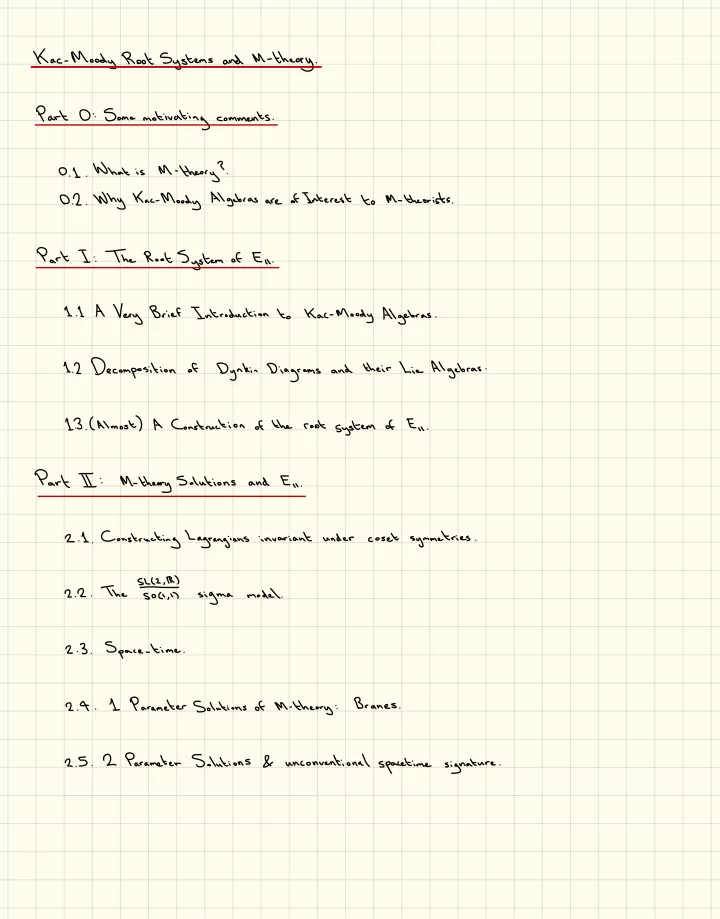 Kac-Moody Root Systems and M-theory.
Part 0: Some motivating comments.
0.1. What is M-theory?
0.2. Why Kac-Moody Algebras are of Interest to M-theorists.
Part I: The Root System of E₁₁.
1.1 A Very Brief Introduction to Kac-Moody Algebras.
1.2 Decomposition of Dynkin Diagrams and their Lie Algebras.
1.3. (Almost) A Construction of the root system of E₁₁.
Part II: M-theory Solutions and E₁₁.
2.1. Constructing Lagrangians invariant under coset symmetries.
2.2. The SL(2,ℝ)/SO(1,1) sigma model.
2.3. Space-time.
2.4. 1 Parameter Solutions of M-theory: Branes.
2.5. 2 Parameter Solutions & unconventional spacetime signature.